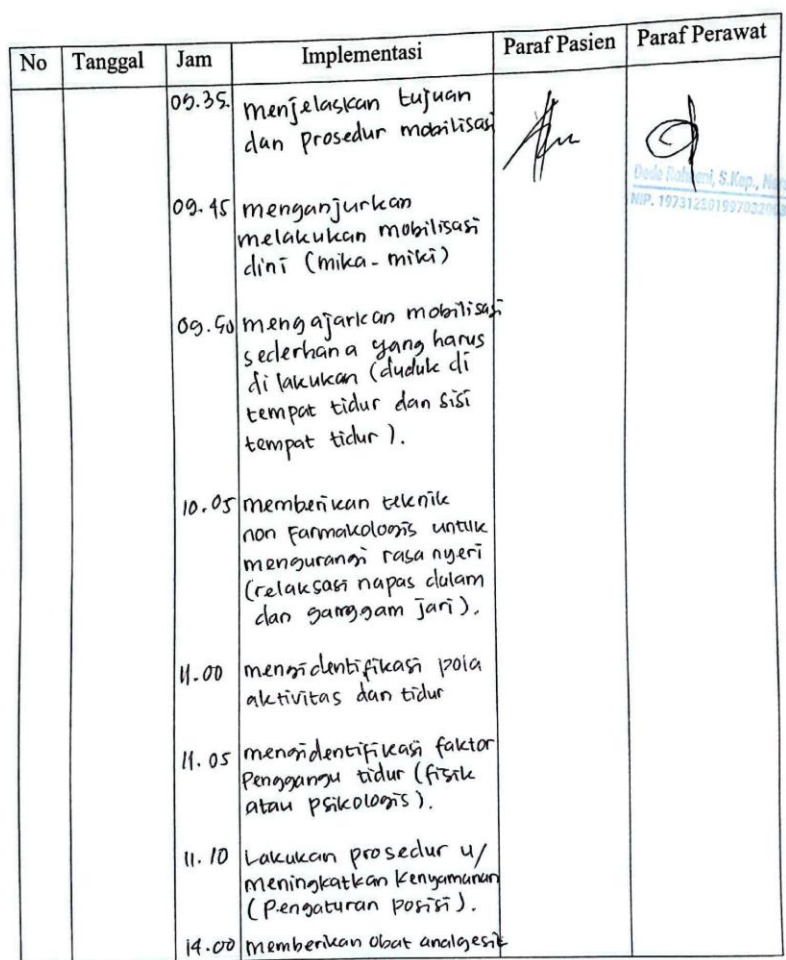 No Tanggal Jam Implementasi Paraf Pasien Paraf Perawat
09.35. menjelaskan tujuan
dan prosedur mobilisasi
S.Kep.,
NIP.
09.45 menganjurkan
melakukan mobilisasi
dini (mika-miki)
09.50 mengajarkan mobilisasi
sederhana yang harus
di lakukan (duduk di
tempat tidur dan sisi
tempat tidur).
10.05 memberikan teknik
non farmakologis untuk
mengurangi rasa nyeri
(relaksasi napas dalam
dan ganggam jari).
11.00 mengidentifikasi pola
aktivitas dan tidur
11.05 mengidentifikasi faktor
Penggangu tidur (fisik
atau psikologis).
11.10 Lakukan prosedur u/
meningkatkan kenyamanan
(Pengaturan posisi).
14.00 memberikan obat analgesik